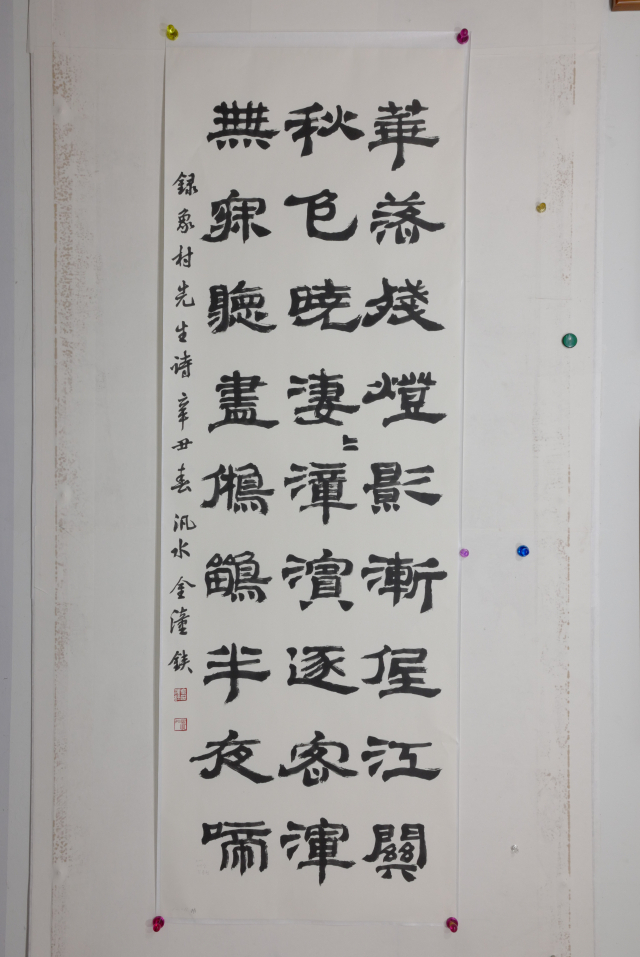 華落殘燈影漸低江關
秋色曉淒〻漳濱逐客渾
無寐聽盡鵂鶹半夜啼
録象村先生诗辛丑春汎水金潼鉄